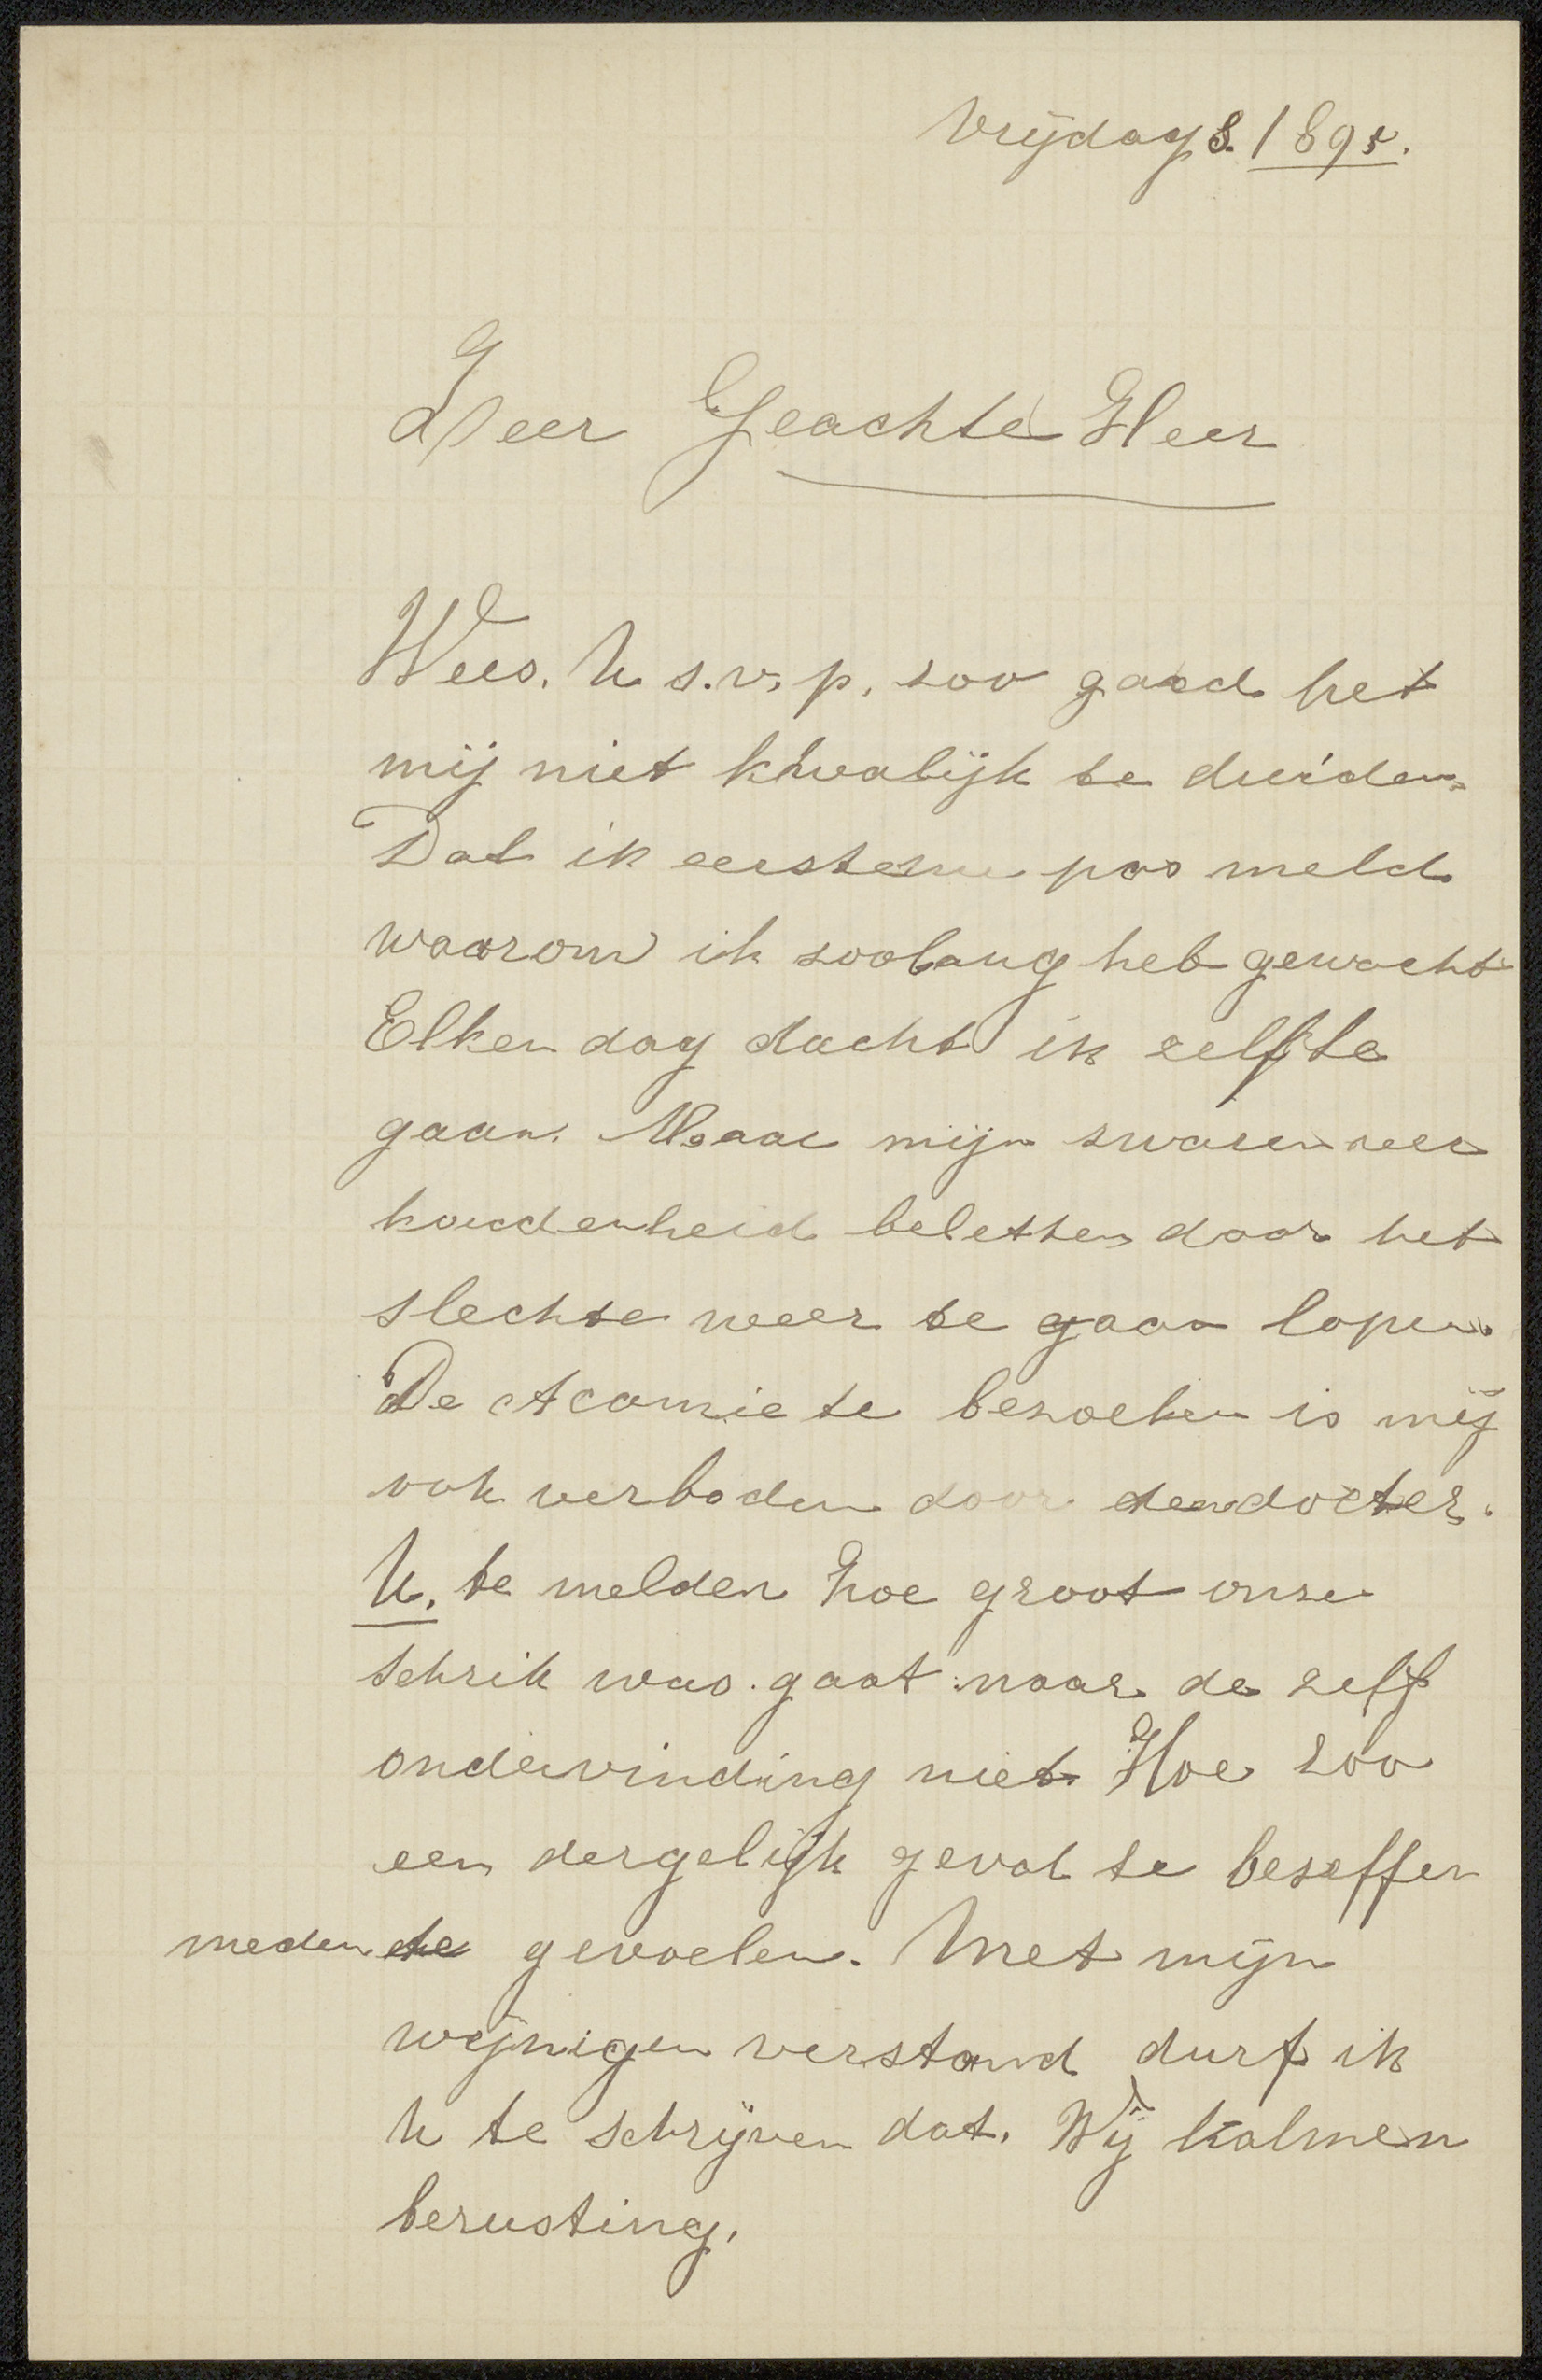 Vrijdag 8. 1895.
Zeer Geachte Heer
Wees. U s.v.p. zoo goed het
mij niet kwalijk te duiden.
Dat ik eerst nu pas meld
waarom ik zoolang heb gewacht
Elken dag dacht ik zelf te
gaan. Maar mijn zwaren ver
koudenheid beletten door het
slechte weer te gaan lopen.
De Acamie te bezoeken is mij
ook verboden door den docter.
U. te melden hoe groot onze
schrik was. gaat naar de zelf
ondervinding niet. Hoe zoo
een dergelijk geval te beseffen
meden te gevoelen. Met mijn
wijnigen verstand durf ik
U te schrijven dat. Wij kalmen
berusting.